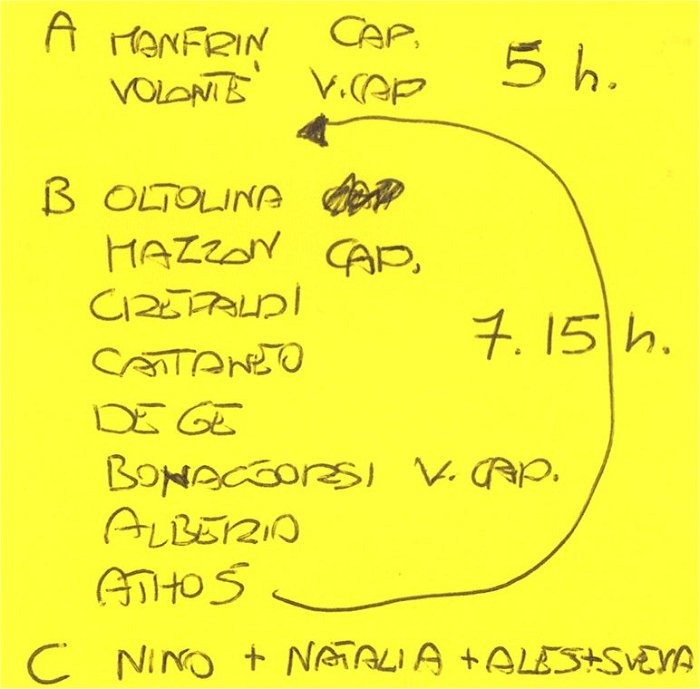 A MANFRIN CAP. 5 h.
VOLONTE' V.CAP
B OLTOLINA
MAZZON CAP.
CREPALDI 7.15 h.
CATTANEO
DE GE
BONACCORSI V. CAP.
ALBERIO
ATHOS
C NINO + NATALIA + ALES + SVEVA